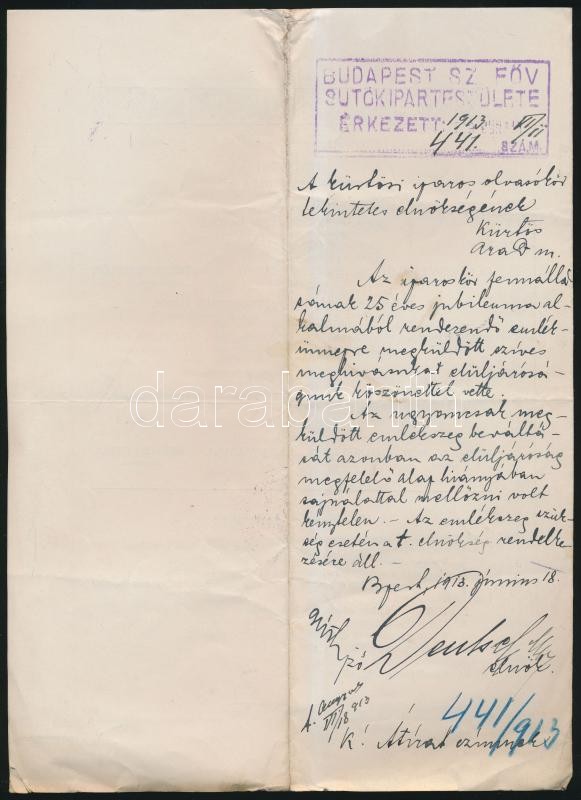 BUDAPEST SZ. FŐV
SÜTŐKIPARTESTÜLETE
ÉRKEZETT: 1913 VI/11
441. SZÁM.
A kürtösi iparos olvasókör
tekintetes elnökségének
Kürtös
Arad m.
Az iparoskör fennállá-
sának 25 éves jubileuma al-
kalmából rendezendő emlék-
ünnepre megküldött szíves
meghívásukat elüljárósá-
gunk köszönettel vette.
Az ugyancsak meg-
küldött emlékszeg beváltá-
sát azonban az elüljáróság
megfelelő alap hiányában
sajnálattal mellőzni volt
kénytelen. – Az emlékszeg szük-
ség esetén a t. elnökség rendelke-
zésére áll. –
Bpest, 1913. június 18.
Deutsch
elnök.
VI/18 913
441/913
K! Átírat czímnek
darabanth